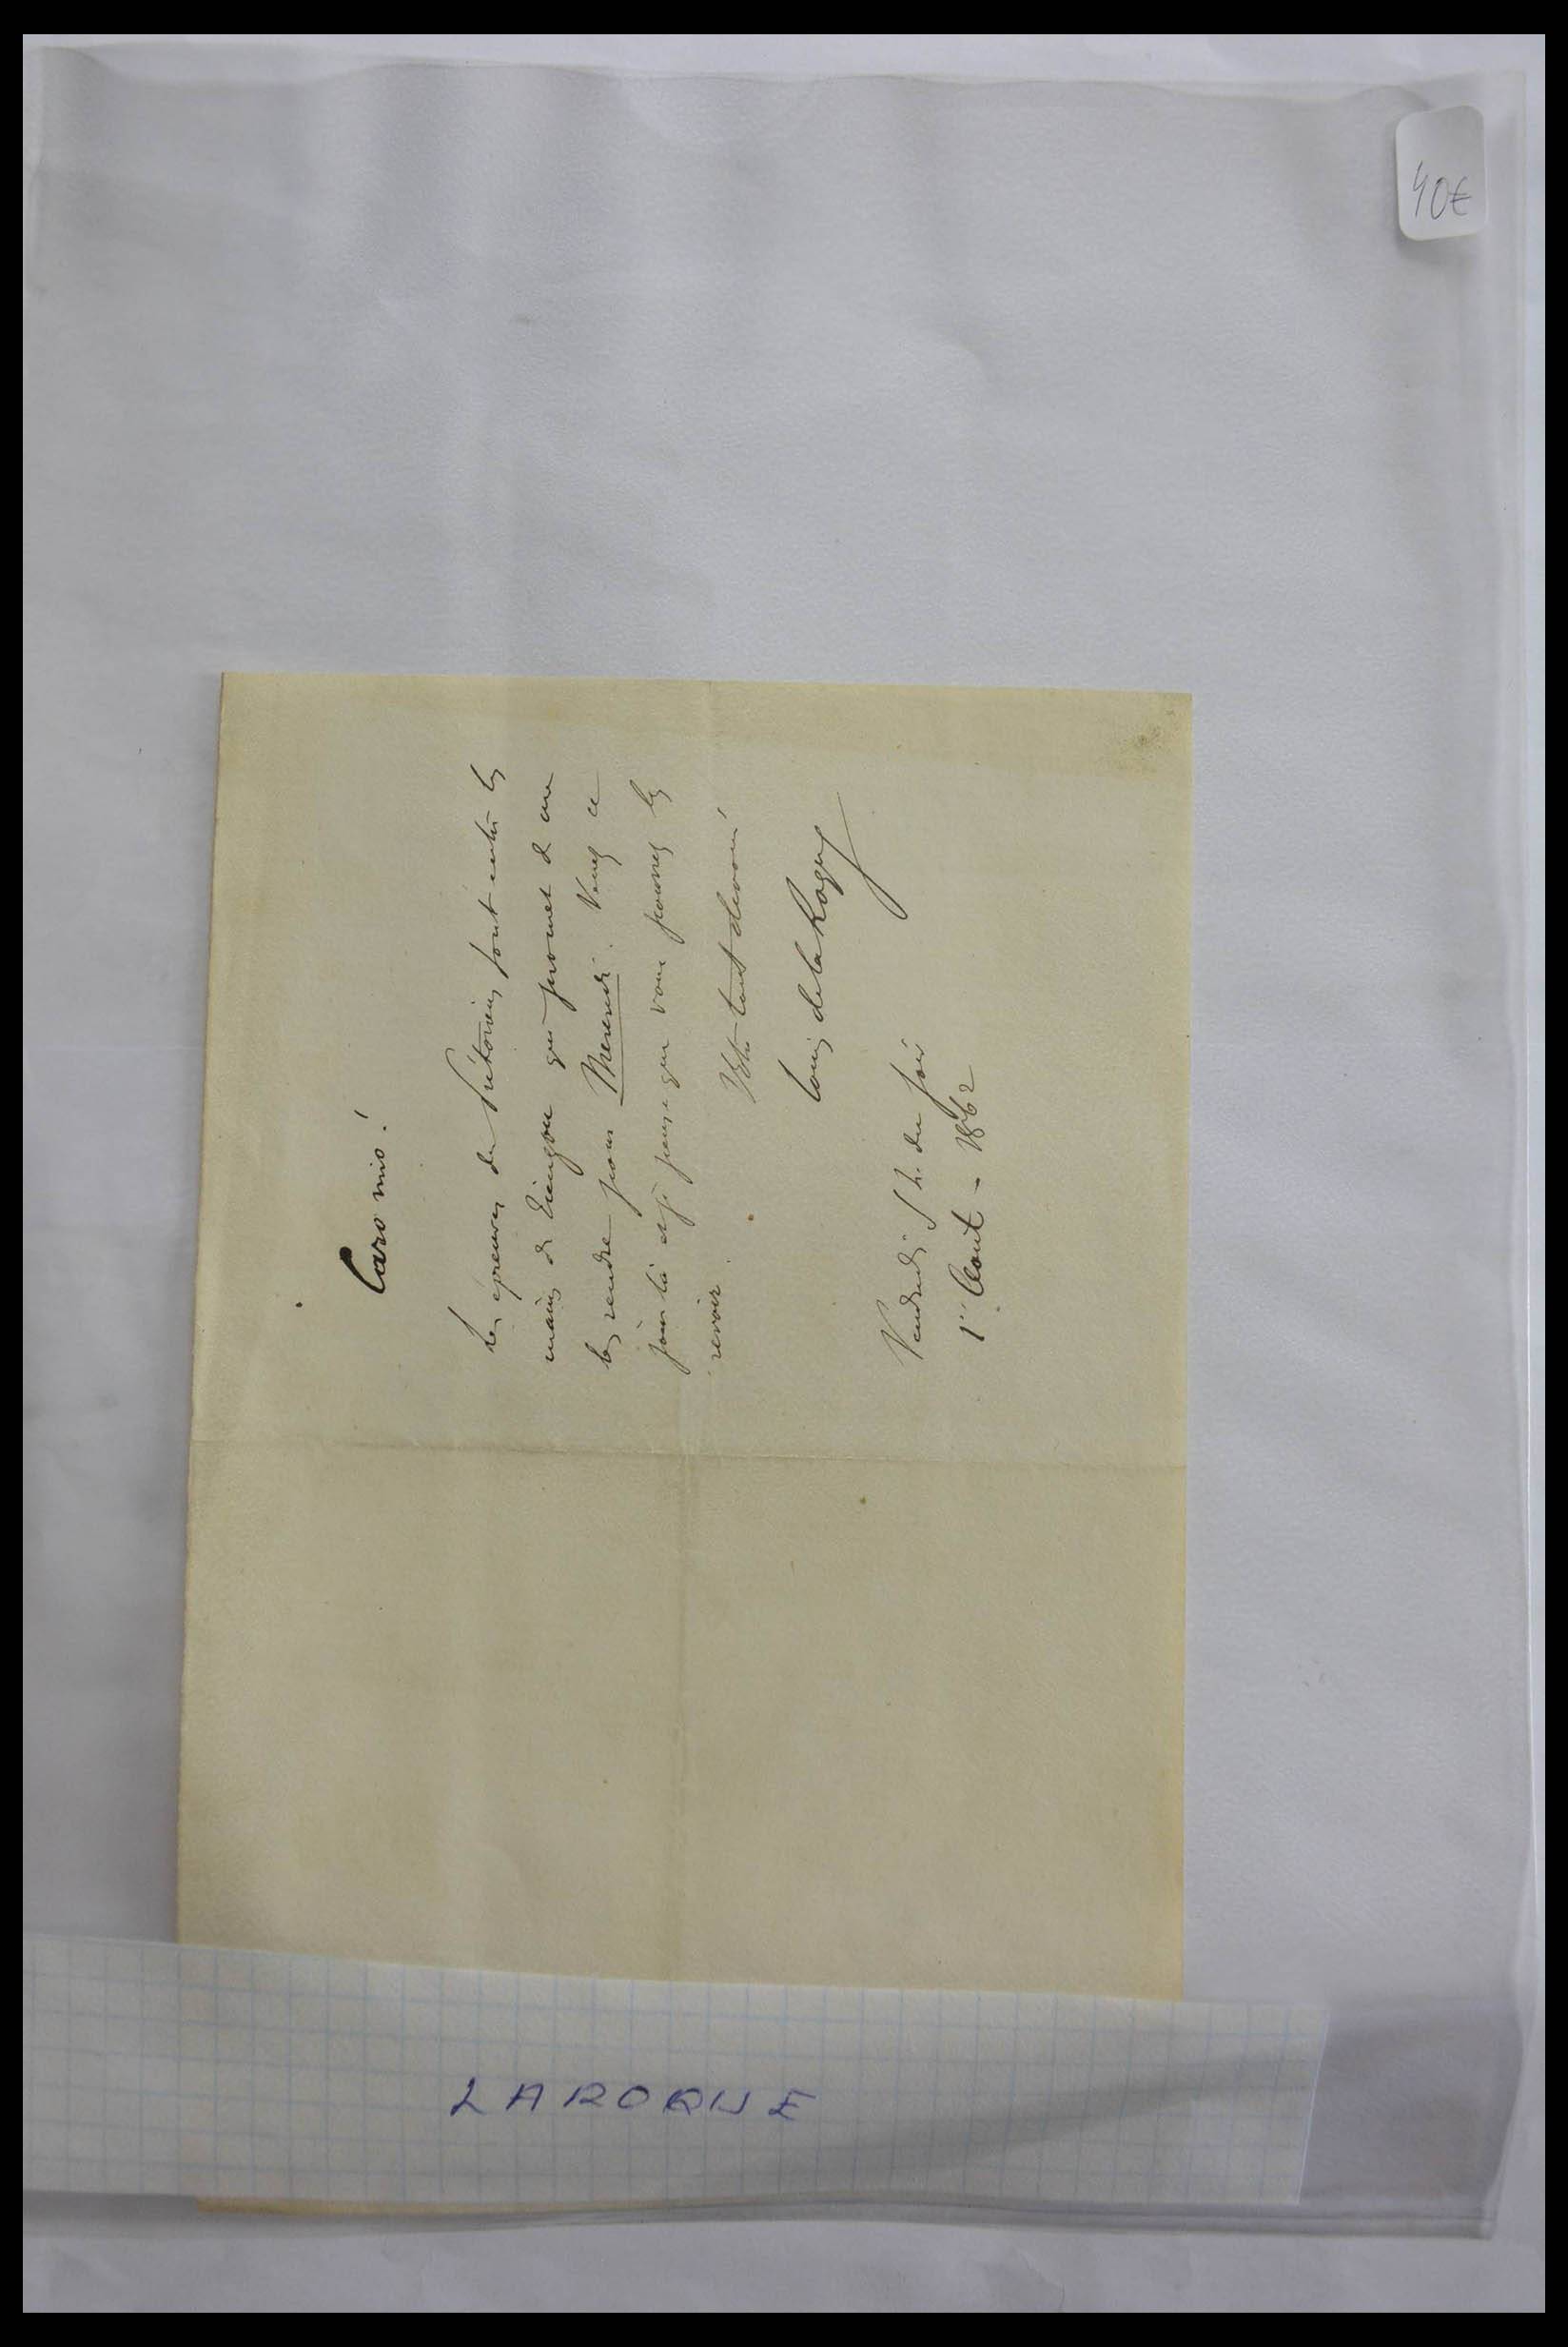 Caro mio!
Les épreuves du Prétorien sont entre les
mains de qui promet de me
les rendre pour Mercredi. Venez ce
jour là et je pense que vous pourrez les
revoir.
Votre tout dévoué
Louis de la Roque
Vendredi 5 h. du soir
1er Aout - 1862
40€
LAROQUE